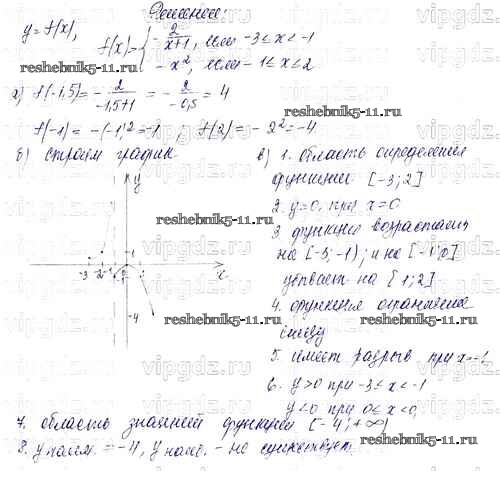 Решение:
y = f(x), f(x) = { -2/(x+1), если -3 ≤ x < -1
-x², если -1 ≤ x ≤ 2
reshebnik5-11.ru reshebnik5-11.ru
а) f(-1,5) = - 2/(-1,5+1) = - 2/(-0,5) = 4
f(-1) = -(-1)² = -1 ; f(2) = -2² = -4
б) строим график
в) 1. область определения
функции [-3; 2]
2. y=0, при x=0
reshebnik5-11.ru
3. функция возрастает
на [-3; -1) ; и на [-1; 0]
убывает на [1; 2]
4. функция ограничена
снизу
reshebnik5-11.ru reshebnik5-11.ru
5. имеет разрыв при x=-1
6. y>0 при -3 ≤ x < -1
y<0 при 0 ≤ x < 0
7. область значений функции [-4; +∞)
8. y наим. = -4, y наиб. - не существует
reshebnik5-11.ru reshebnik5-11.ru
y
x
-3 -2 -1 0
-1
-4
vipgdz.ru